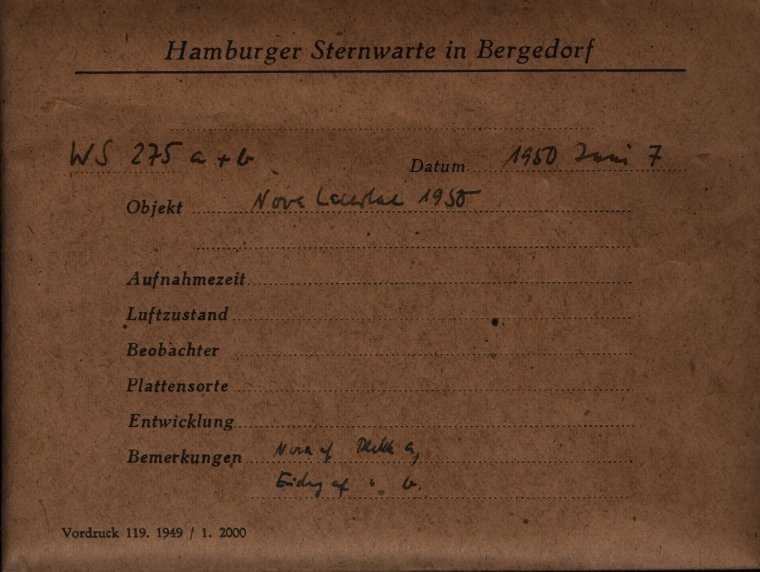 Hamburger Sternwarte in Bergedorf
WS 275 a + b
Datum 1950 Juni 7
Objekt Nova Lacertae 1950
Aufnahmezeit
Luftzustand
Beobachter
Plattensorte
Entwicklung
Bemerkungen Nova auf Platte a,
auf b.
Vordruck 119. 1949 / 1. 2000